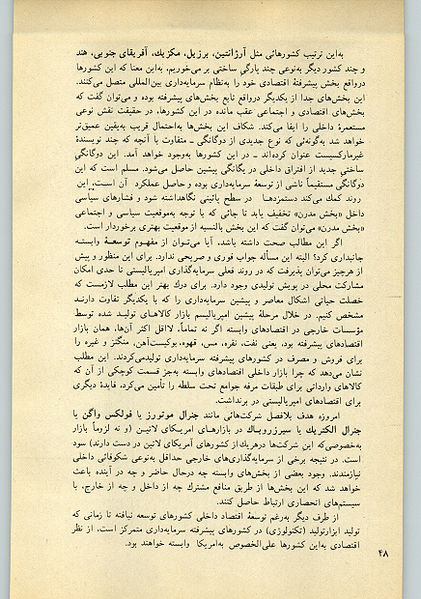 به‌این ترتیب کشورهائی مثل آرژانتین، برزیل، مکزیك، آفریقای جنوبی، هند
و چند کشور دیگر به‌نوعی چند پارگی ساختی بر می‌خوریم، به‌این معنا که این کشورها
درواقع بخش پیشرفتهٔ اقتصادی خود را به‌نظام سرمایه‌داری بین‌المللی متصل می‌کنند.
این بخش‌های جدا از یکدیگر درواقع تابع بخش‌های پیشرفته بوده و می‌توان گفت که
بخش‌های اقتصادی و اجتماعی عقب مانده در این کشورها، در حقیقت نقش نوعی
مستعمرهٔ داخلی را ایفا می‌کند. شکاف این بخش‌ها به‌احتمال قریب به‌یقین عمیق‌تر
خواهد شد به‌گونه‌ئی که نوع جدیدی از دوگانگی ـ متفاوت با آنچه که چند نویسندهٔ
غیرمارکسیست عنوان کرده‌اند ـ در این کشورها به‌وجود خواهد آمد. این دوگانگی
ساختی جدید از افتراق داخلی در یگانگی پیشین حاصل می‌شود. مسلم است که این
دوگانگی مستقیماً ناشی از توسعهٔ سرمایه‌داری بوده و حاصل عملکرد آن است. این
روند کمك می‌کند دستمزدها در سطح پائینی نگاهداشته شود و فشارهای سیاسی
داخل «بخش مدرن» تخفیف یابد تا جائی که با توجه به‌موقعیت سیاسی و اجتماعی
«بخش مدرن» می‌توان گفت که این بخش بالنسبه از موقعیت بهتری برخوردار است.
اگر این مطالب صحت داشته باشد، آیا می‌توان از مفهوم توسعهٔ وابسته
جانبداری کرد؟ البته این مسأله جواب فوری و صریحی ندارد. برای این منظور و پیش
از هرچیز می‌توان پذیرفت که در روند فعلی سرمایه‌گذاری امپریالیستی تا حدی امکان
مشارکت محلی در پویش تولیدی وجود دارد. برای درك بهتر این مطلب لازمست که
خصلت حیاتی اشکال معاصر و پیشین سرمایه‌داری را که با یکدیگر تفاوت دارند
مشخص کنیم. در خلال مرحلهٔ پیشین امپریالیسم بازار کالاهای تولید شده توسط
مؤسسات خارجی در اقتصادهای وابسته اگر نه تماماً، لااقل اکثر آن‌ها، همان بازار
اقتصادهای پیشرفته بود، یعنی نفت، نقره، مس، قهوه، بوکیست‌آهن، منگنز و غیره را
برای فروش و مصرف در کشورهای پیشرفته سرمایه‌داری تولیدمی‌کردند. این مطلب
نشان می‌دهد که چرا بازار داخلی اقتصادهای وابسته به‌جز قسمت کوچکی از آن که
کالاهای وارداتی برای طبقات مرفه جوامع تحت سلطه را تأمین می‌کرد، فایدهٔ دیگری
برای اقتصادهای امپریالیستی در برنداشت.
امروزه هدف بلافصل شرکت‌هائی مانند جنرال موتورز یا فولکس واگن یا
جنرال الکتریك یا سیرزروباك در بازارهای امریکای لاتین، (و نه لزوماً بازار
به‌خصوصی‌که این شرکت‌ها درهریك‌از کشورهای آمریکای لاتین در دست دارند) سود
است. در نتیجه برخی از سرمایه‌گذاری‌های خارجی حداقل به‌نوعی شکوفائی داخلی
نیازمندند. وجود بعضی از بخش‌های وابسته چه درحال حاضر و چه در آینده باعث
خواهد شد که این بخش‌ها از طریق منافع مشترك چه از داخل و چه از خارج، با
سیستم‌های انحصاری ارتباط حاصل کنند.
از طرف دیگر به‌رغم توسعهٔ اقتصاد داخلی کشورهای توسعه نیافته تا زمانی که
تولید ابزارتولید (تکنولوژی) در کشورهای پیشرفته سرمایه‌داری متمرکز است، از نظر
اقتصادی به‌این کشورها علی‌الخصوص به‌امریکا وابسته خواهند بود.
۴۸